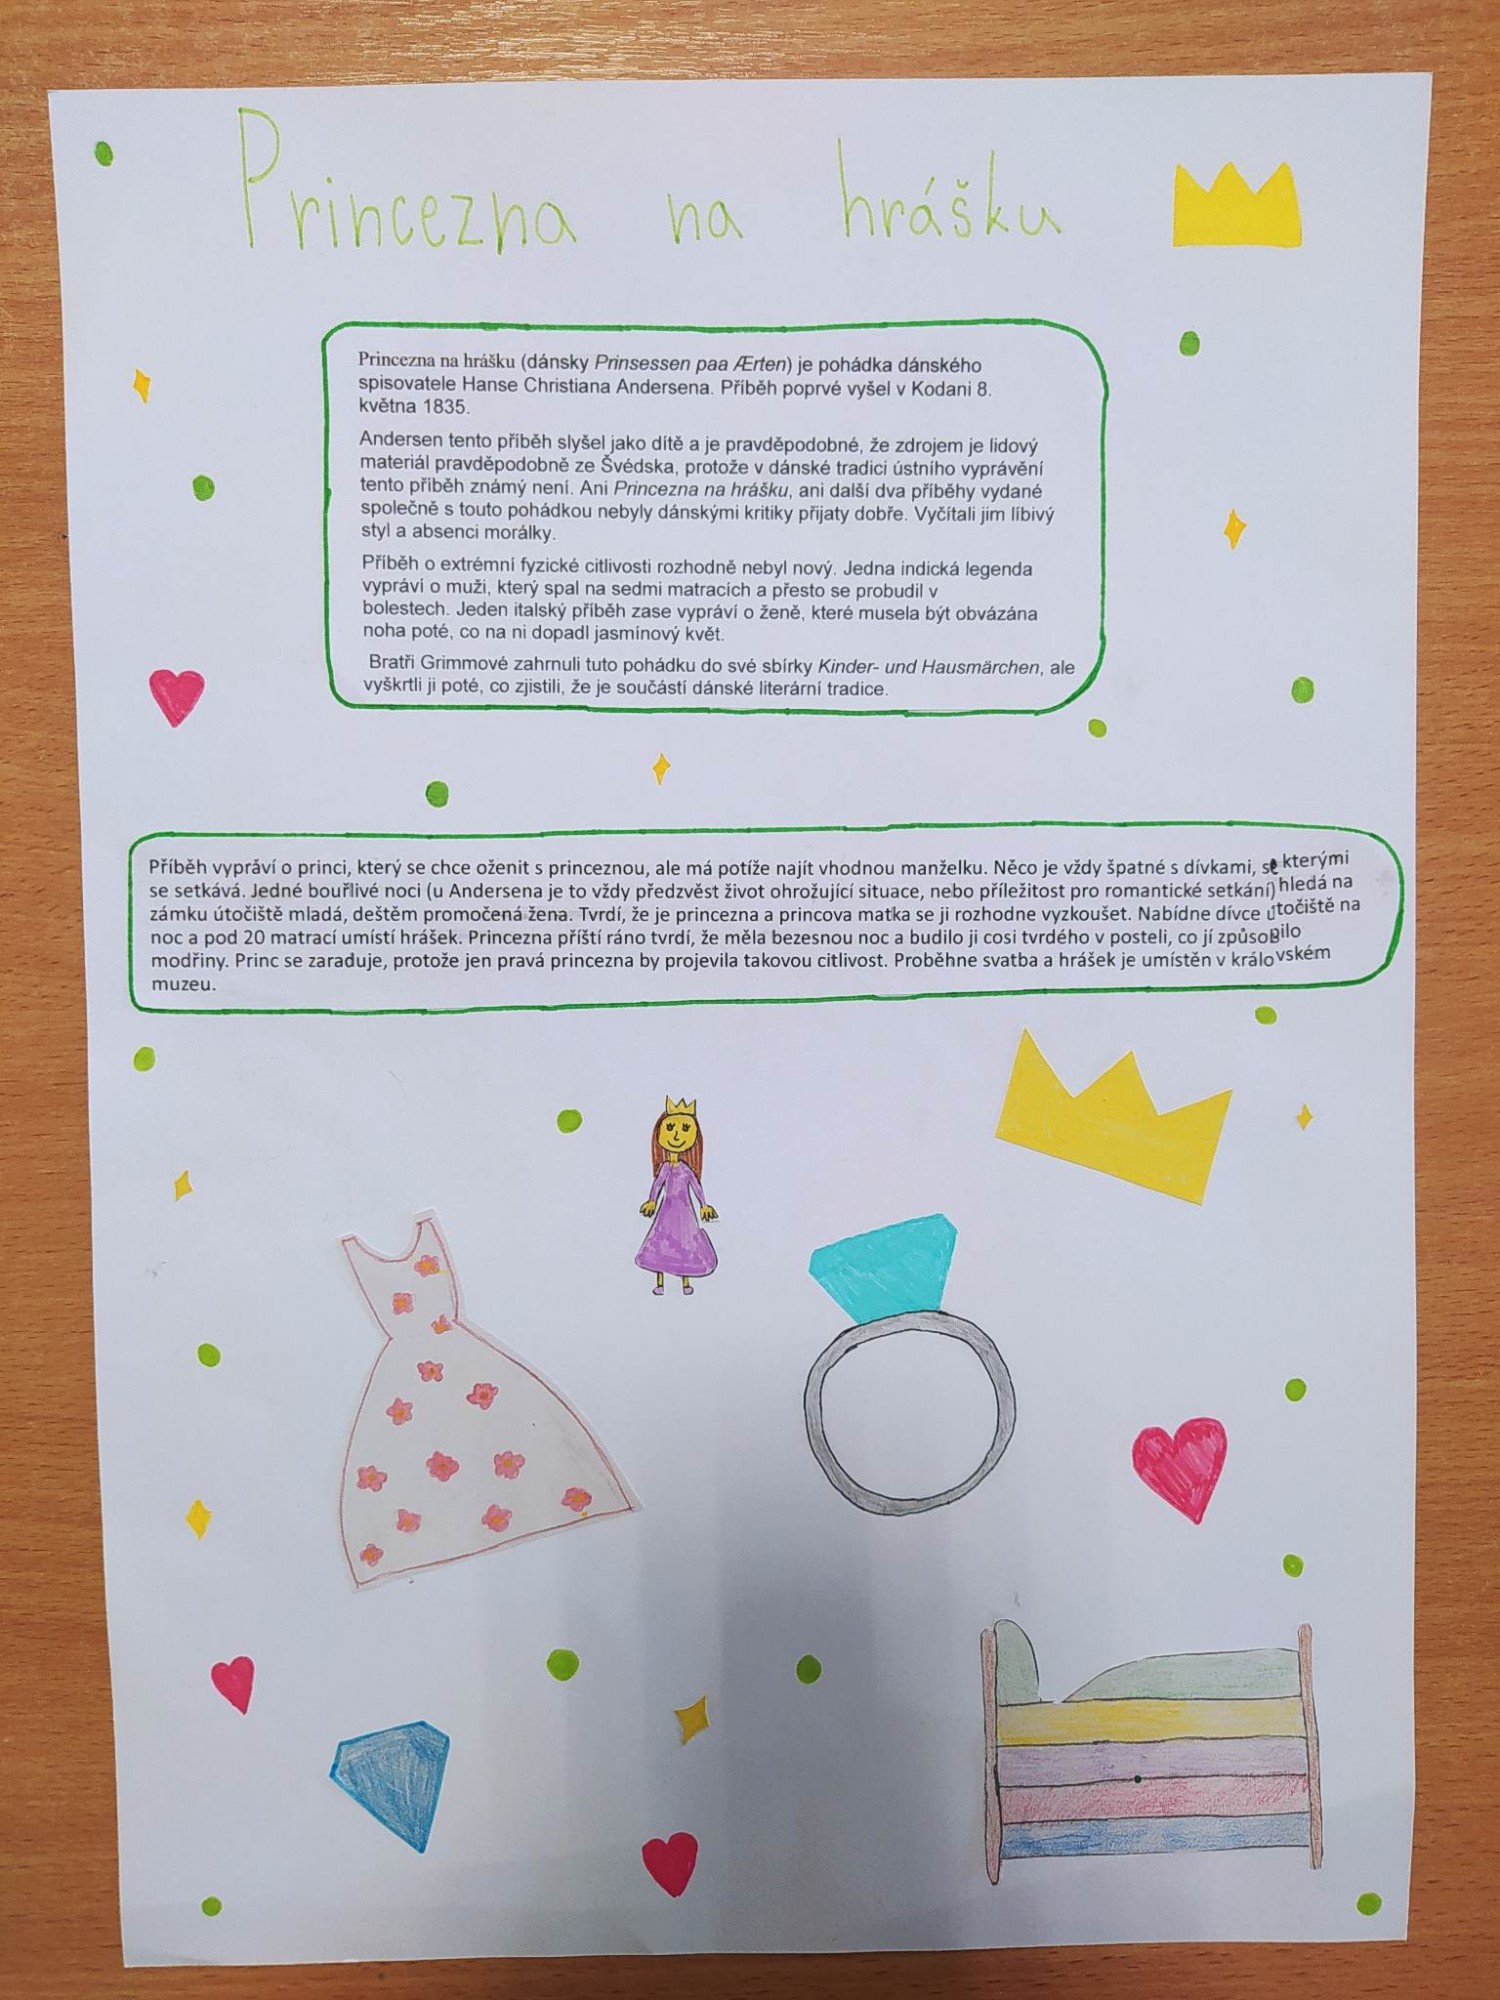 Princezna na hrášku
Princezna na hrášku (dánsky Prinsessen paa Ærten) je pohádka dánského
spisovatele Hanse Christiana Andersena. Příběh poprvé vyšel v Kodani 8.
května 1835.
Andersen tento příběh slyšel jako dítě a je pravděpodobné, že zdrojem je lidový
materiál pravděpodobně ze Švédska, protože v dánské tradici ústního vyprávění
tento příběh známý není. Ani Princezna na hrášku, ani další dva příběhy vydané
společně s touto pohádkou nebyly dánskými kritiky přijaty dobře. Vyčítali jim líbivý
styl a absenci morálky.
Příběh o extrémní fyzické citlivosti rozhodně nebyl nový. Jedna indická legenda
vypráví o muži, který spal na sedmi matracích a přesto se probudil v
bolestech. Jeden italský příběh zase vypráví o ženě, které musela být obvázána
noha poté, co na ni dopadl jasmínový květ.
Bratři Grimmové zahrnuli tuto pohádku do své sbírky Kinder- und Hausmärchen, ale
vyškrtli ji poté, co zjistili, že je součástí dánské literární tradice.
Příběh vypráví o princi, který se chce oženit s princeznou, ale má potíže najít vhodnou manželku. Něco je vždy špatné s dívkami, se kterými
se setkává. Jedné bouřlivé noci (u Andersena je to vždy předzvěst život ohrožující situace, nebo příležitost pro romantické setkání) hledá na
zámku útočiště mladá, deštěm promočená žena. Tvrdí, že je princezna a princova matka se ji rozhodne vyzkoušet. Nabídne dívce útočiště na
noc a pod 20 matrací umístí hrášek. Princezna příští ráno tvrdí, že měla bezesnou noc a budilo ji cosi tvrdého v posteli, co jí způsobilo
modřiny. Princ se zaraduje, protože jen pravá princezna by projevila takovou citlivost. Proběhne svatba a hrášek je umístěn v královském
muzeu.